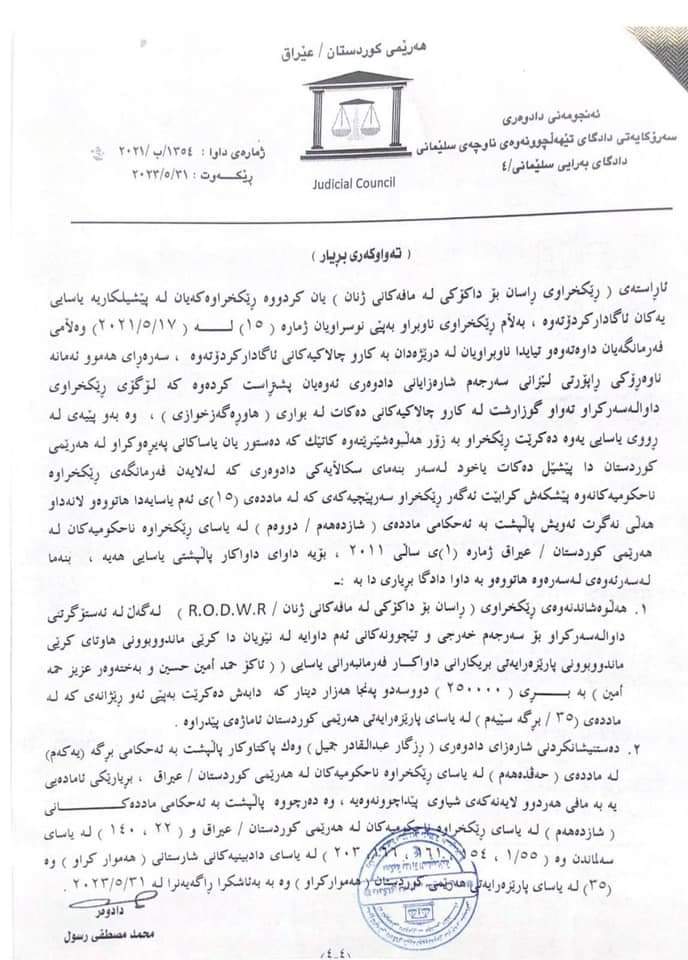 هەرێمی کوردستان / عێراق
ئەنجومەنی دادوەری
سەرۆکایەتی دادگای تێهەڵچوونەوەی ناوچەی سلێمانی
دادگای بەرایی سلێمانی/٤
ژمارەی داوا : ١٣٥٤/ب /٢٠٢١
ڕێکەوت : ٢٠٢٣/٥/٣١
Judicial Council
( تەواوکەری بڕیار )
ئاڕاستەی ( ڕێکخراوی ڕاسان بۆ داکۆکی لە مافەکانی ژنان ) یان کردووە ڕێکخراوەکەیان لە پێشیلکاریە یاسایی
یەکان ئاگادارکردۆتەوە ، بەڵام ڕێکخراوی ناوبراو بەپێی نوسراویان ژمارە ( ١٥ ) لـــە ( ٢٠٢١/٥/١٧ ) وەڵامی
فەرمانگەیان داوەتەوەو تیایدا ناوبراویان لە درێژەدان بە کارو چالاکیەکانی ئاگادارکردۆتەوە ، سەرەڕای هەموو ئەمانە
ناوەڕۆکی ڕاپۆرتی لێژنەی سەرجەم شارەزایانی دادوەری ئەوەیان پشتڕاست کردەوە کە لۆگۆی ڕێکخراوی
داوالەسەرکراو تەواو گوزارشت لە کارو چالاکیەکانی دەکات لە بواری ( هاوڕەگەزخوازی ) ، وە بەو پێیەی لە
ڕووی یاسایی یەوە دەکرێت ڕێکخراو بە زۆر هەڵبوەشێنرێتەوە کاتێك کە دەستور یان یاساکانی پەیڕەوکراو لە هەرێمی
کوردستان دا پێشێل دەکات یاخود لەسەر بنەمای سکاڵایەکی دادوەری کە لەلایەن فەرمانگەی ڕێکخراوە
ناحکومیەکانەوە پێشکەش کرابێت ئەگەر ڕێکخراو سەرپێچیەکەی کە لە ماددەی (١٥)ی ئەم یاسایەدا هاتووەو لانەداو
هەڵی نەگرت ئەویش پاڵپشت بە ئەحکامی ماددەی ( شازدەهەم / دووەم ) لە یاسای ڕێکخراوە ناحکومیەکان لە
هەرێمی کوردستان / عیراق ژمارە (١)ی ساڵی ٢٠١١ ، بۆیە داوای داواکار پاڵپشتی یاسایی هەیە ، بنەما
لەسەرئەوەی لەسەرەوە هاتووەو بە داوا دادگا بڕیاری دا بە :ـ
١. هەڵوەشاندنەوەی ڕێکخراوی ( ڕاسان بۆ داکۆکی لە مافەکانی ژنان / R.O.D.W.R ) لەگەڵ لە ئەستۆگرتنی
داوالەسەرکراو بۆ سەرجەم خەرجی و تێچوونەکانی ئەم داوایە لە نێویان دا کرێی ماندووبوونی هاوتای کرێی
ماندووبوونی پارێزەرایەتی بریکارانی داواکار فەرمانبەرانی یاسایی ( ( ئاکۆ حمد أمین حسین و بەختەوەر عزیز حمە
أمین ) بە بـــڕی ( ٢٥٠٠٠٠ ) دووسەدو پەنجا هەزار دینار کە دابەش دەکرێت بەپێی ئەو ڕێژانەی کە لە
ماددەی (٣٥ / بڕگە سێیەم ) لە یاسای پارێزەرایەتی هەرێمی کوردستان ئاماژەی پێدراوە .
٢. دەستنیشانکردنی شارەزای دادوەری ( ڕزگار عبدالقادر جمیل ) وەك پاکتاوکار پاڵپشت بە ئەحکامی بڕگە (یەکەم)
لە ماددەی ( حەڤدەهەم ) لە یاسای ڕێکخراوە ناحکومیەکان لە هەرێمی کوردستان / عیراق ، بڕیارێکی ئامادەیی
یە بە مافی هەردوو لایەنەکەی شیاوی پێداچوونەوەیە ، وە دەرچووە پاڵپشت بە ئەحکامی ماددەکـــانی
( شازدەهەم ) لە یاسای ڕێکخراوە ناحکومیەکان لە هەرێمی کوردستان / عێراق و ( ٢٢ ، ١٤٠ ) لە یاسای
سەلماندن وە ( ١/٥٥ ، ١٥٤ ، ١٦١ ، ١٦٦ ، ٢٠٣ ) لە یاسای دادبینیەکانی شارستانی ( هەموار کراو ) وە
(٣٥) لە یاسای پارێزەرایەتی هەرێمی کوردستان ( هەموارکراو ) وە بە ئاشکرا ڕاگەیەنرا لە ٢٠٢٣/٥/٣١ .
دادوەر
محمد مصطفی رسول
(٤ـ٤)